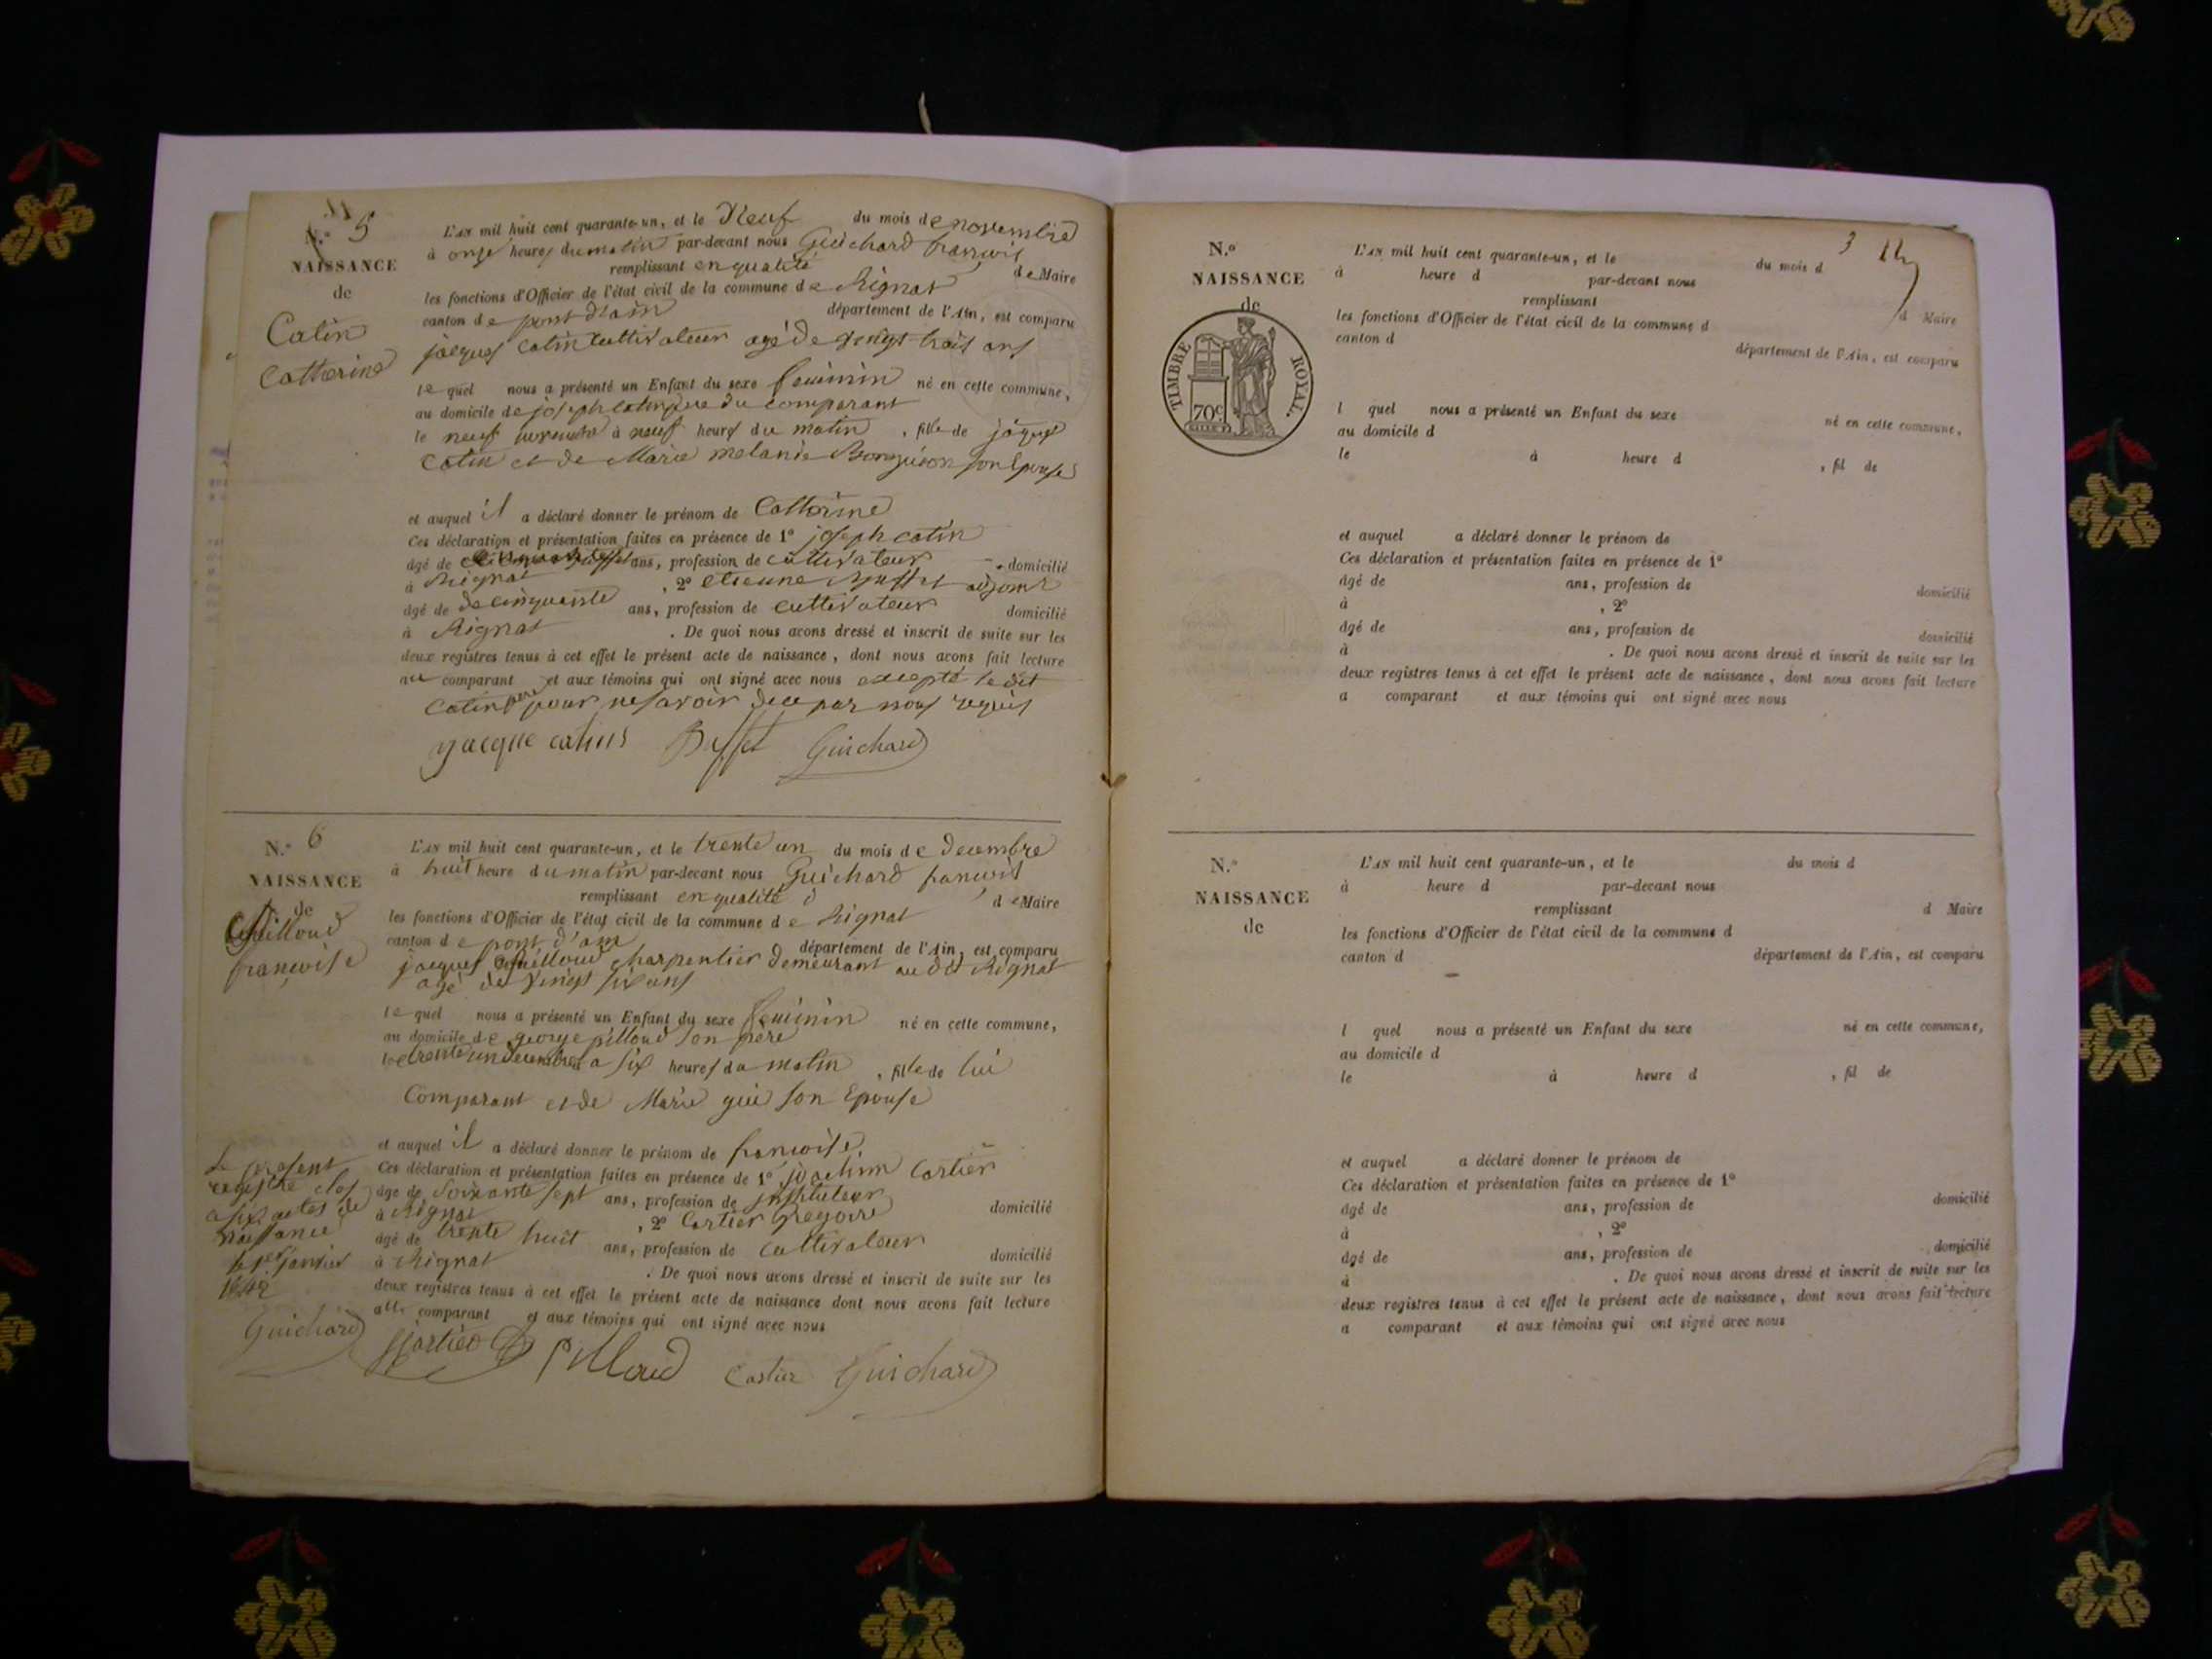 N.º 5
NAISSANCE
de
Catin
Catherine
L'AN mil huit cent quarante-un, et le Neuf du mois de novembre
à onze heures du matin par-devant nous Guichard francois
remplissant en qualité de Maire
les fonctions d'Officier de l'état civil de la commune de Rignat
canton de pont d'ain département de l'Ain, est comparu
jacques Catin cultivateur agé de vingt trois ans
le quel nous a présenté un Enfant du sexe feminin né en cette commune,
au domicile de joseph catin père du comparant
le neuf novembre à neuf heures du matin, fille de jaques
Catin et de Marie melanie son Epouse
et auquel il a déclaré donner le prénom de Catherine
Ces déclaration et présentation faites en présence de 1º joseph catin
âgé de ans, profession de cultivateur domicilié
à Rignat, 2º etienne Buffet adjoint
âgé de de cinquante ans, profession de cultivateur domicilié
à Rignat. De quoi nous avons dressé et inscrit de suite sur les
deux registres tenus à cet effet le présent acte de naissance, dont nous avons fait lecture
au comparant et aux témoins qui ont signé avec nous excepté le dit
Catin père pour ne savoir de ce par nous requis
jacque catin Buffet Guichard
N.º 6
NAISSANCE
de
pilloud
francoise
L'AN mil huit cent quarante-un, et le trente un du mois de decembre
à huit heure du matin par-devant nous Guichard francois
remplissant en qualité de Maire
les fonctions d'Officier de l'état civil de la commune de Rignat
canton de pont d'ain département de l'Ain, est comparu
jacques pilloud charpentier demeurant au dit Rignat
agé de vingt six ans
le quel nous a présenté un Enfant du sexe feminin né en cette commune,
au domicile de george pilloud son père
le trente un decembre à six heures du matin, fille de lui
Comparant et de Marie son Epouse
et auquel il a déclaré donner le prénom de francoise
Ces déclaration et présentation faites en présence de 1º joachim Cartier
âgé de soixante sept ans, profession de instituteur
à Rignat, 2º Cartier gregoire domicilié
âgé de trente huit ans, profession de cultivateur
à Rignat domicilié
. De quoi nous avons dressé et inscrit de suite sur les
deux registres tenus à cet effet le présent acte de naissance dont nous avons fait lecture
comparant et aux témoins qui ont signé avec nous
Le present
registre clos
a six actes de
naissance
le 1er janvier
1842
Guichard
Cartier Pilloud Cartier Guichard
3
N.º
NAISSANCE
de
TIMBRE ROYAL.
70c
L'AN mil huit cent quarante-un, et le du mois d
à heure d par-devant nous
remplissant d Maire
les fonctions d'Officier de l'état civil de la commune d
canton d département de l'Ain, est comparu
l quel nous a présenté un Enfant du sexe né en cette commune,
au domicile d
le à heure d , fil de
et auquel a déclaré donner le prénom de
Ces déclaration et présentation faites en présence de 1º
âgé de ans, profession de domicilié
à , 2º
âgé de ans, profession de domicilié
à . De quoi nous avons dressé et inscrit de suite sur les
deux registres tenus à cet effet le présent acte de naissance, dont nous avons fait lecture
a comparant et aux témoins qui ont signé avec nous
N.º
NAISSANCE
de
L'AN mil huit cent quarante-un, et le du mois d
à heure d par-devant nous
remplissant d Maire
les fonctions d'Officier de l'état civil de la commune d
canton d département de l'Ain, est comparu
l quel nous a présenté un Enfant du sexe né en cette commune,
au domicile d
le à heure d , fil de
et auquel a déclaré donner le prénom de
Ces déclaration et présentation faites en présence de 1º
âgé de ans, profession de domicilié
à , 2º
âgé de ans, profession de domicilié
à . De quoi nous avons dressé et inscrit de suite sur les
deux registres tenus à cet effet le présent acte de naissance, dont nous avons fait lecture
a comparant et aux témoins qui ont signé avec nous